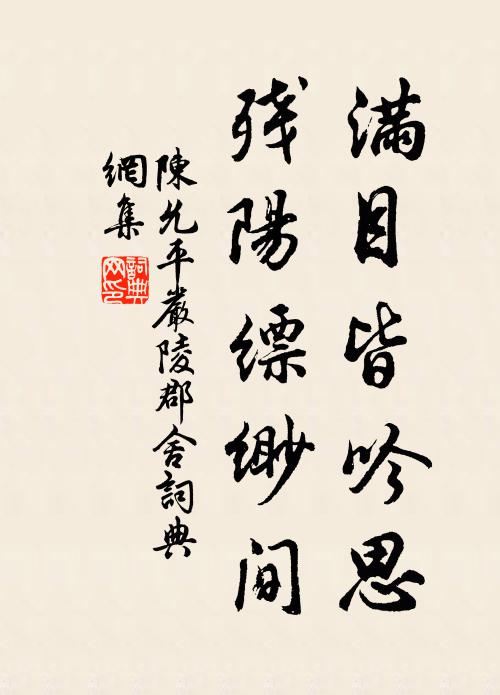 滿目皆吟思
殘陽縹緲間
陳允平嚴陵郡舍詞典
網集
詞典網印